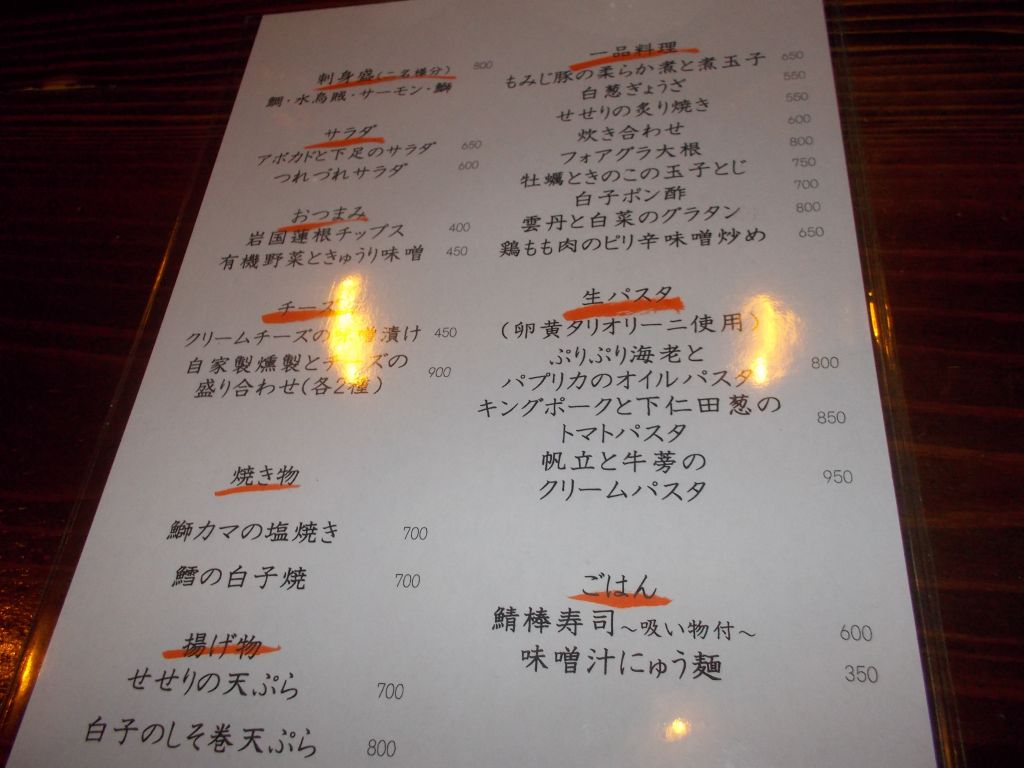 刺身盛(二名様分) 800
鯛・水烏賊・サーモン・鰤
サラダ
アボカドと下足のサラダ 650
つれづれサラダ 600
おつまみ
岩国蓮根チップス 400
有機野菜ときゅうり味噌 450
チーズ
クリームチーズの味噌漬け 450
自家製燻製とチーズの
盛り合わせ(各2種) 900
焼き物
鰤カマの塩焼き 700
鱈の白子焼 700
揚げ物
せせりの天ぷら 700
白子のしそ巻天ぷら 800
一品料理
もみじ豚の柔らか煮と煮玉子 650
白葱ぎょうざ 550
せせりの炙り焼き 550
炊き合わせ 600
フォアグラ大根 800
牡蠣ときのこの玉子とじ 750
白子ポン酢 700
雲丹と白菜のグラタン 800
鶏もも肉のピリ辛味噌炒め 650
生パスタ
(卵黄タリオリーニ使用)
ぷりぷり海老と
パプリカのオイルパスタ 800
キングポークと下仁田葱の
トマトパスタ 850
帆立と牛蒡の
クリームパスタ 950
ごはん
鯖棒寿司～吸い物付～ 600
味噌汁にゅう麺 350